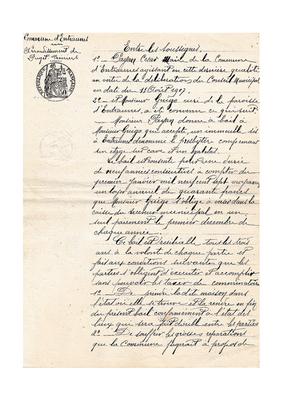 Commune d'Entraunes
Arrondissement de
Puget-Théniers
Entre les soussignés:
1º - Payan César Maire de la Commune
d'Entraunes agissant en cette dernière qualité
en vertu de la délibération du Conseil Municipal
en date du 11 Août 1907.
2º - et Monsieur Guigo curé de la paroisse
d'Entraunes, a été convenu ce qui suit:
Monsieur Payan donne à bail à
Monsieur Guigo qui accepte, un immeuble sis
à Entraunes dénommé le presbytère comprenant
un étage sur cave et un galetas.
Le bail est consenti pour une durée
de neuf années consécutives à compter du
premier janvier mil neuf cent sept moyennant
un loyer annuel de quarante francs
que Monsieur Guigo s'oblige à verser dans la
caisse du receveur municipal en un
seul paiement le premier décembre de
chaque année.
Ce bail est résiliable tous les trois
ans à la volonté de chaque partie et
fait aux conditions suivantes que les
parties s'obligent d'exécuter et accomplir
sans pouvoir les taxer de comminatoire
1º - De prendre la dite maison dans
l'état où elle se trouve et la rendre en fin
du présent bail conformément à l'état des
lieux qui sera fait double entre les parties
2º - De souffrir les grosses réparations
que la Commune jugerait à propos de